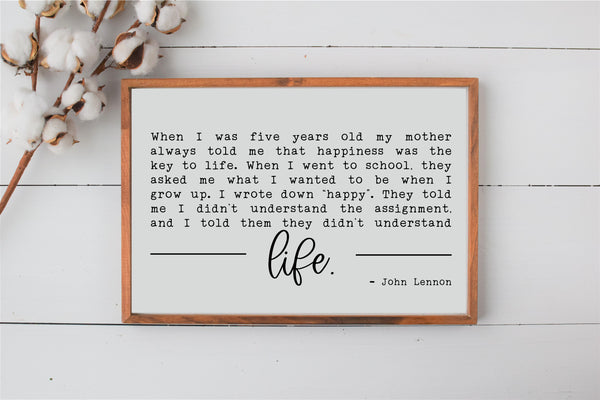 When I was five years old my mother
always told me that happiness was the
key to life. When I went to school, they
asked me what I wanted to be when I
grow up. I wrote down "happy". They told
me I didn't understand the assignment,
and I told them they didn't understand
life.
- John Lennon